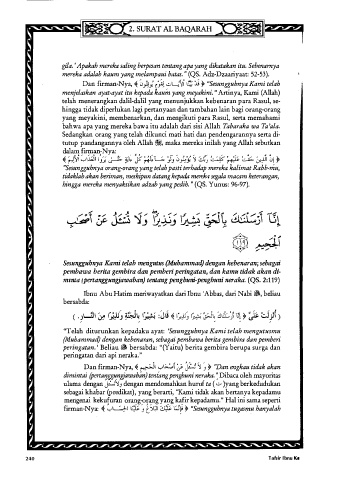 2. SURAT AL BAQARAH
gila.' Apakah mereka saling berpesan tentang apa yang dikatakan itu. Sebenarnya
mereka adalah kaum yang melampaui batas." (QS. Adz-Dzaariyaat: 52-53).
Dan firman-Nya, ﴿ قَدْ بَيَّنَّا الْآيَاتِ لِقَوْمٍ يُوقِنُونَ ﴾ "Sesungguhnya Kami telah
menjelaskan ayat-ayat itu kepada kaum yang meyakini." Artinya, Kami (Allah)
telah menerangkan dalil-dalil yang menunjukkan kebenaran para Rasul, se-
hingga tidak diperlukan lagi pertanyaan dan tambahan lain bagi orang-orang
yang meyakini, membenarkan, dan mengikuti para Rasul, serta memahami
bahwa apa yang mereka bawa itu adalah dari sisi Allah Tabaraka wa Ta'ala.
Sedangkan orang yang telah dikunci mati hati dan pendengarannya serta di-
tutup pandangannya oleh Allah ﷻ, maka mereka inilah yang Allah sebutkan
dalam firman-Nya:
﴿ إِنَّ الَّذِينَ حَقَّتْ عَلَيْهِمْ كَلِمَتُ رَبِّكَ لَا يُؤْمِنُونَ وَلَوْ جَاءَتْهُمْ كُلُّ ءَايَةٍ حَتَّى يَرَوُا الْعَذَابَ الْأَلِيمَ ﴾
"Sesungguhnya orang-orang yang telah pasti terhadap mereka kalimat Rabb-mu,
tidaklah akan beriman, meskipun datang kepada mereka segala macam keterangan,
hingga mereka menyaksikan adzab yang pedih." (QS. Yunus: 96-97).
إِنَّا أَرْسَلْنَاكَ بِالْحَقِّ بَشِيرًا وَنَذِيرًا وَلَا تُسْئَلُ عَنْ أَصْحَابِ
الْجَحِيمِ ١١٩
Sesungguhnya Kami telah mengutus (Muhammad) dengan kebenaran; sebagai
pembawa berita gembira dan pemberi peringatan, dan kamu tidak akan di-
minta (pertanggungjawaban) tentang penghuni-penghuni neraka. (QS. 2:119)
Ibnu Abu Hatim meriwayatkan dari Ibnu 'Abbas, dari Nabi ﷺ, beliau
bersabda:
( أُنْزِلَتْ عَلَيَّ ﴿ إِنَّا أَرْسَلْنَاكَ بِالْحَقِّ بَشِيرًا وَنَذِيرًا ﴾ قَالَ: بَشِيْرًا بِالْجَنَّةِ وَنَذِيْرًا مِنَ النَّارِ. )
"Telah diturunkan kepadaku ayat: 'Sesungguhnya Kami telah mengutusmu
(Muhammad) dengan kebenaran, sebagai pembawa berita gembira dan pemberi
peringatan.' Beliau ﷺ bersabda: "(Yaitu) berita gembira berupa surga dan
peringatan dari api neraka."
Dan firman-Nya, ﴿ وَلَا تُسْئَلُ عَنْ أَصْحَابِ الْجَحِيمِ ﴾ "Dan engkau tidak akan
dimintai (pertanggungjawaban) tentang penghuni neraka." Dibaca oleh mayoritas
ulama dengan وَلَا تُسْئَلُ dengan mendomahkan huruf ta ( ت ) yang berkedudukan
sebagai khabar (predikat), yang berarti, "Kami tidak akan bertanya kepadamu
mengenai kekufuran orang-orang yang kafir kepadamu." Hal ini sama seperti
firman-Nya: ﴿ فَإِنَّمَا عَلَيْكَ الْبَلَاغُ وَعَلَيْنَا الْحِسَابُ ﴾ "Sesungguhnya tugasmu hanyalah
240
Tafsir Ibnu Ka